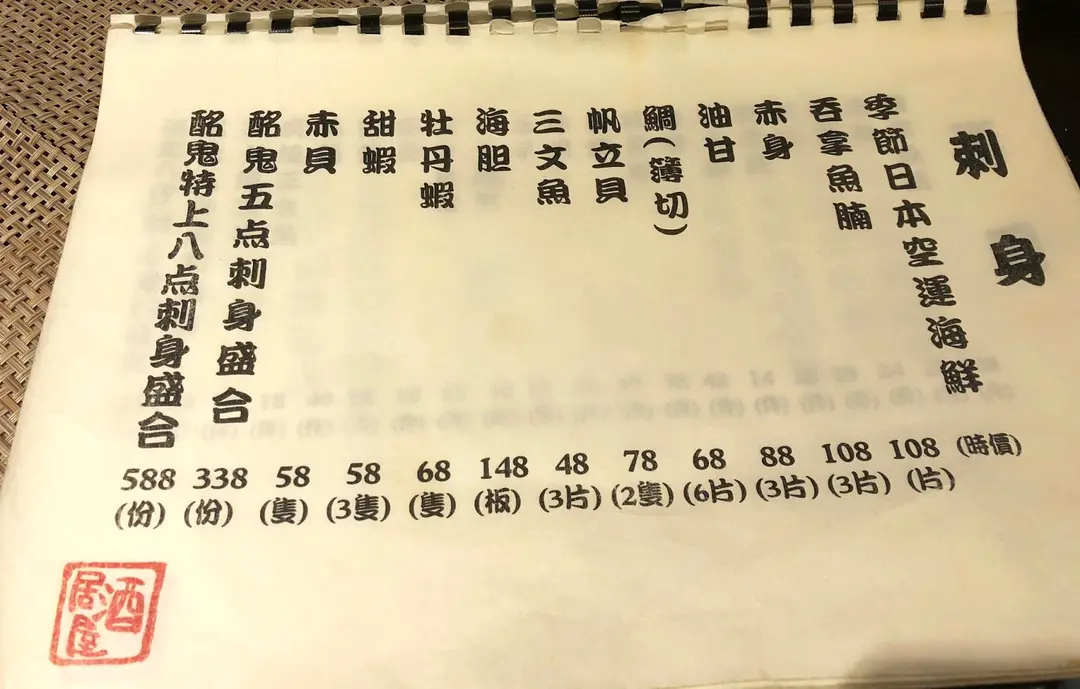 刺身
季節日本空運海鮮 (時價)
吞拿魚腩 108 (片)
赤身 108 (3片)
油甘 88 (3片)
鯛(簿切) 68 (6片)
帆立貝 78 (2隻)
三文魚 48 (3片)
海胆 148 (板)
牡丹蝦 68 (隻)
甜蝦 58 (3隻)
赤貝 58 (隻)
酩鬼五点刺身盛合 338 (份)
酩鬼特上八点刺身盛合 588 (份)
居酒屋